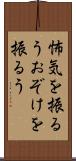 怖気を振る
うおぞけを
振るう